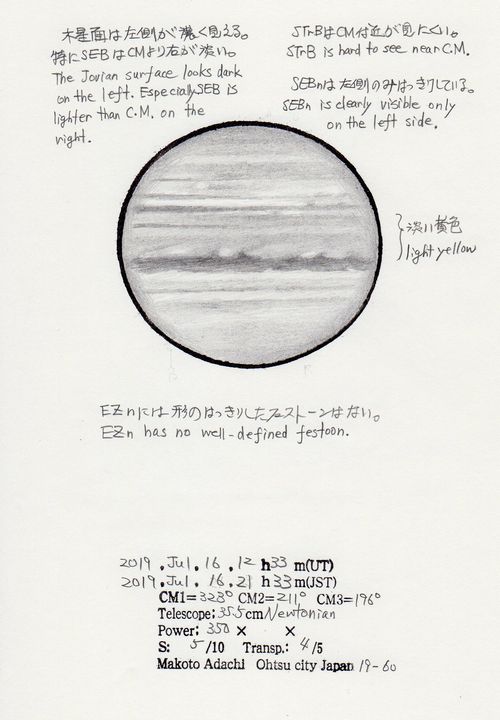 木星面は左側が濃く見える。
特にSEBはCMより右が淡い。
The Jovian surface looks dark
on the left. Especially SEB is
lighter than C.M. on the
right.
STrBはCM付近が見にくい。
STrB is hard to see near C.M.
SEBnは左側のみはっきりしている。
SEBn is clearly visible only
on the left side.
淡い黄色
light yellow
EZnには形のはっきりしたフェストーンはない。
EZn has no well-defined festoon.
2019.Jul.16.12 h33 m(UT)
2019.Jul.16.21 h33m(JST)
CM1=323° CM2=211° CM3=196°
Telescope: 35.5cm Newtonian
Power: 350× ×
S: 5/10 Transp.: 4/5
Makoto Adachi Ohtsu city Japan 19-60